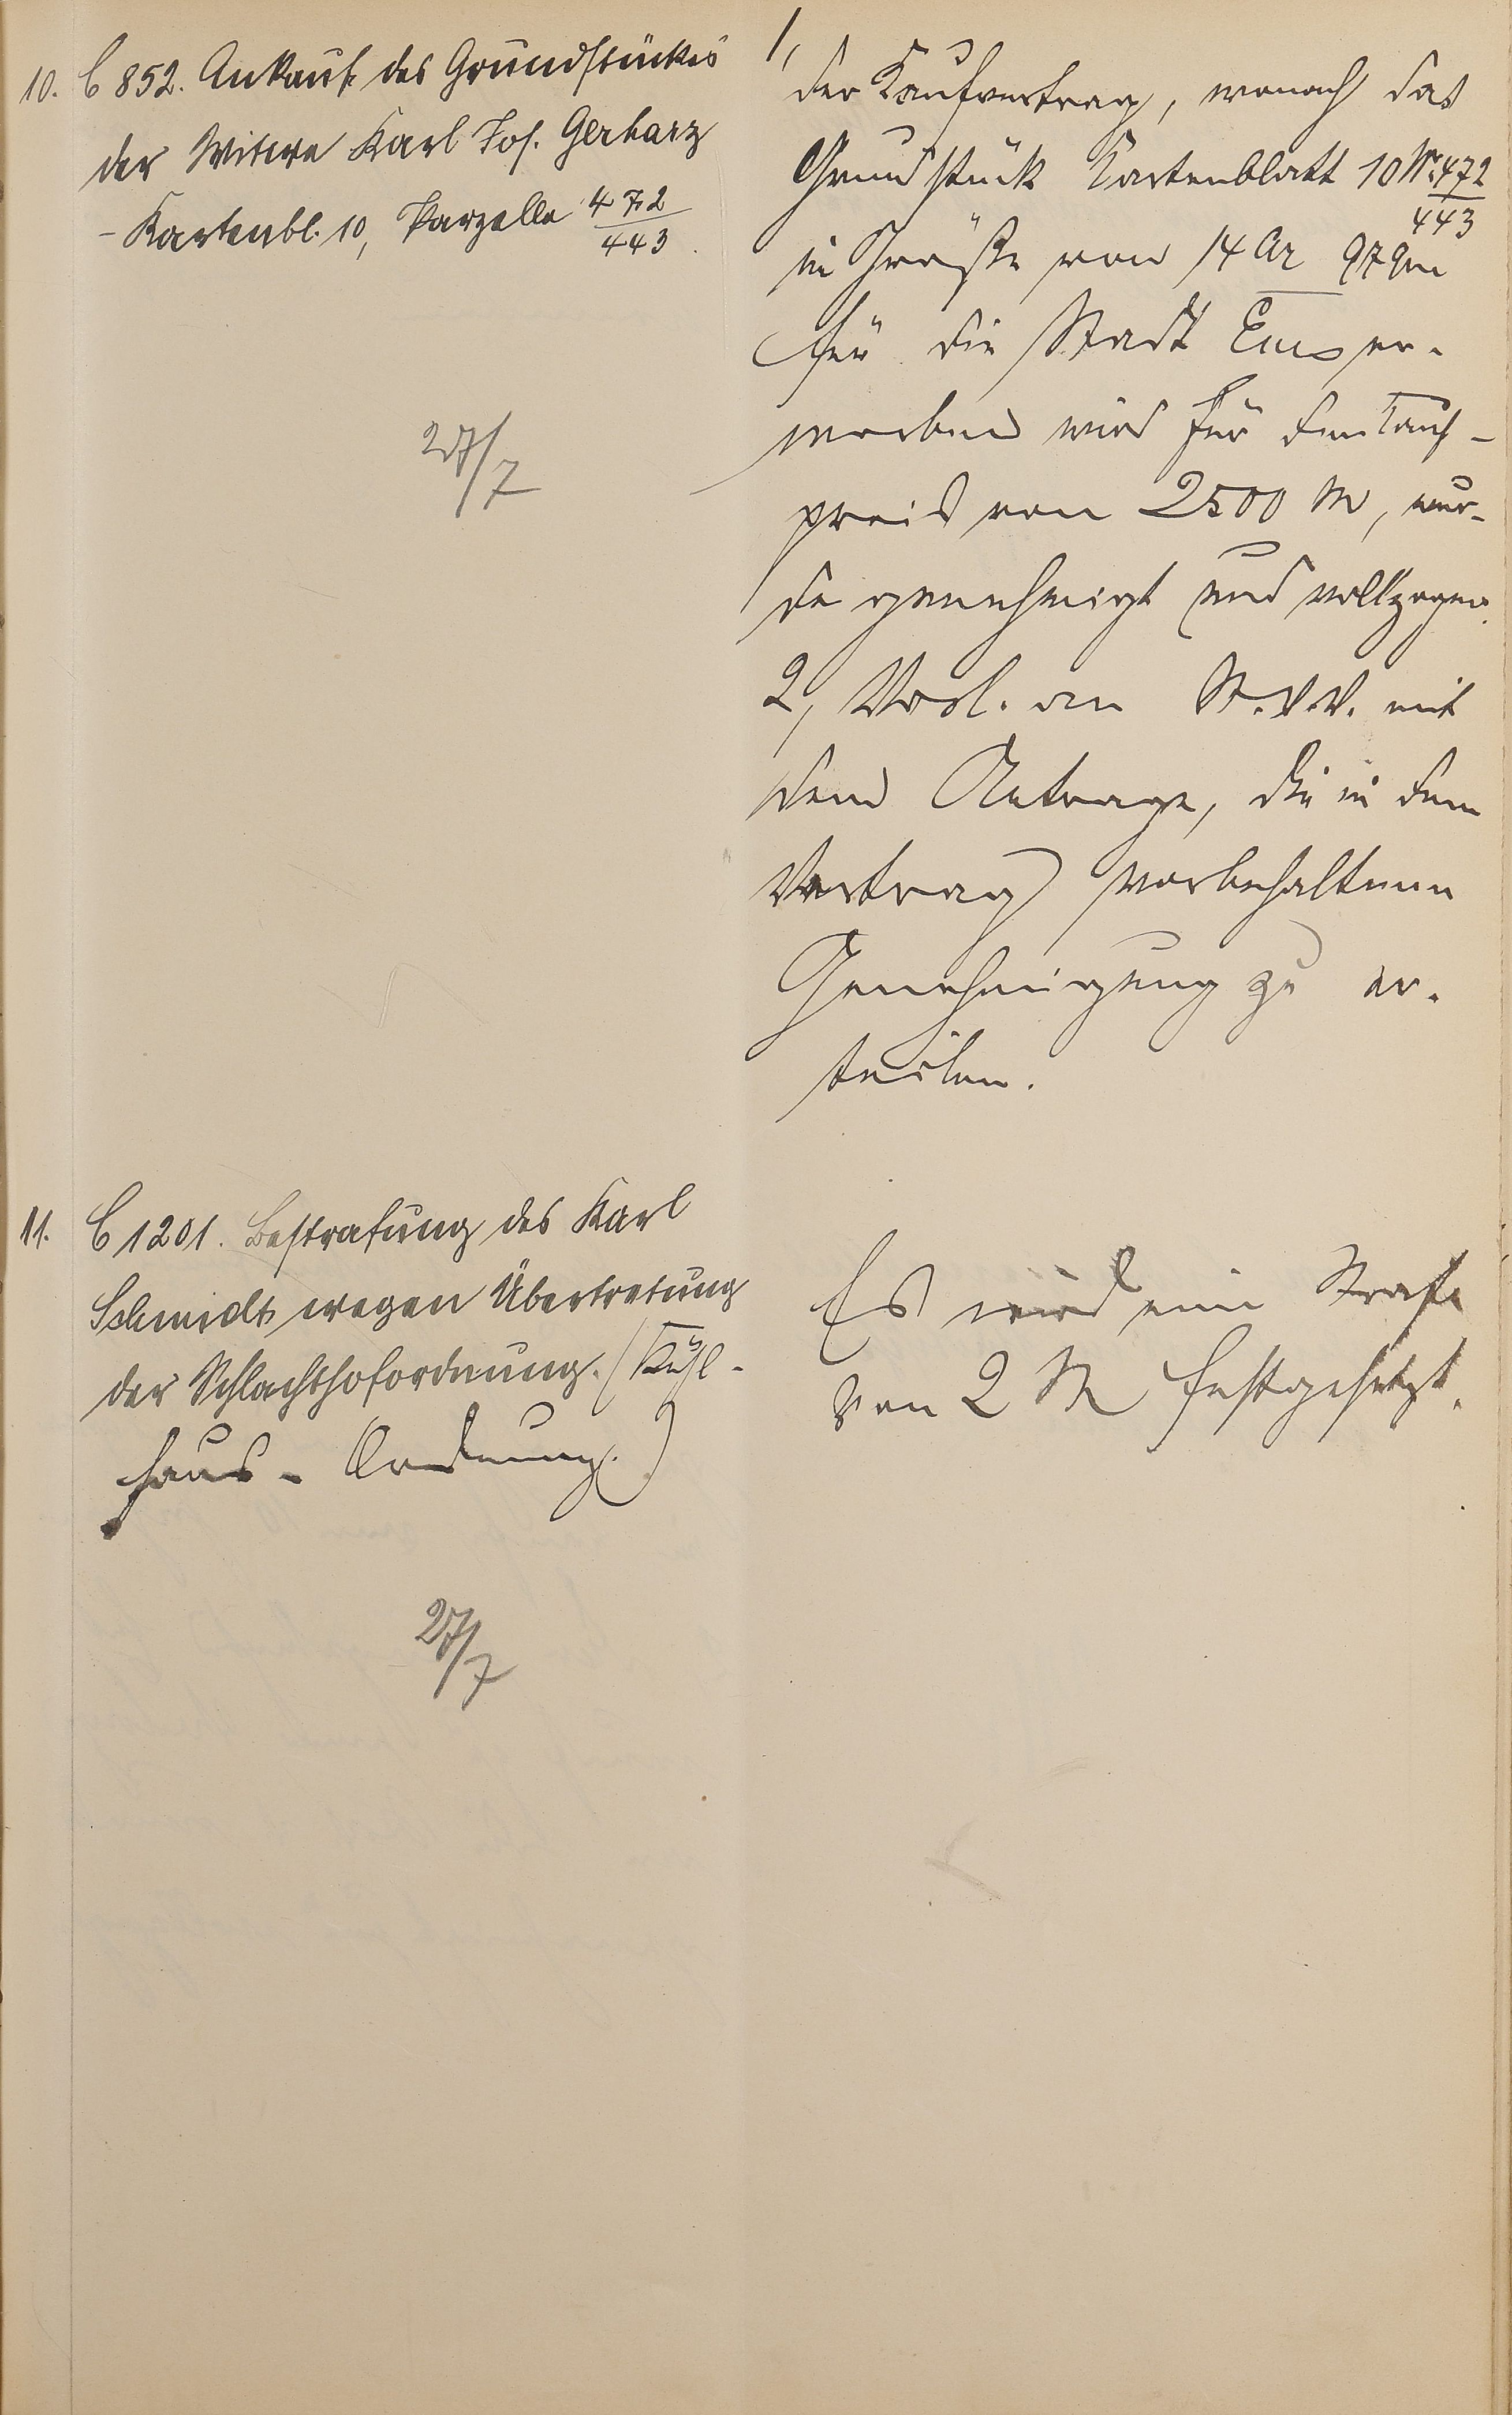 10. C 852. Ankauf des Grundstückes
der Witwe Karl Jos. Gerharz
- Kartenbl. 10, Parzelle 472/443.
27/7
1,
der Kaufvertrag, wonach das
Grundstück Kartenblatt 10 Nr. 472/443
in Größe von 14 Ar 97 qm
für die Stadt Ems er-
worben wird für den Kauf-
preis von 2500 M, wur-
de genehmigt und vollzogen.
2, Vorl. an St.V.V. mit
dem Antrage, die in dem
Vertrag vorbehaltene
Genehmigung zu er-
teilen.
11. C 1201. Bestrafung des Karl
Schmidt wegen Übertretung
der Schlachthofordnung. (Kühl-
haus-Ordnung.)
27/7
Es wird eine Strafe
von 2 M festgesetzt.